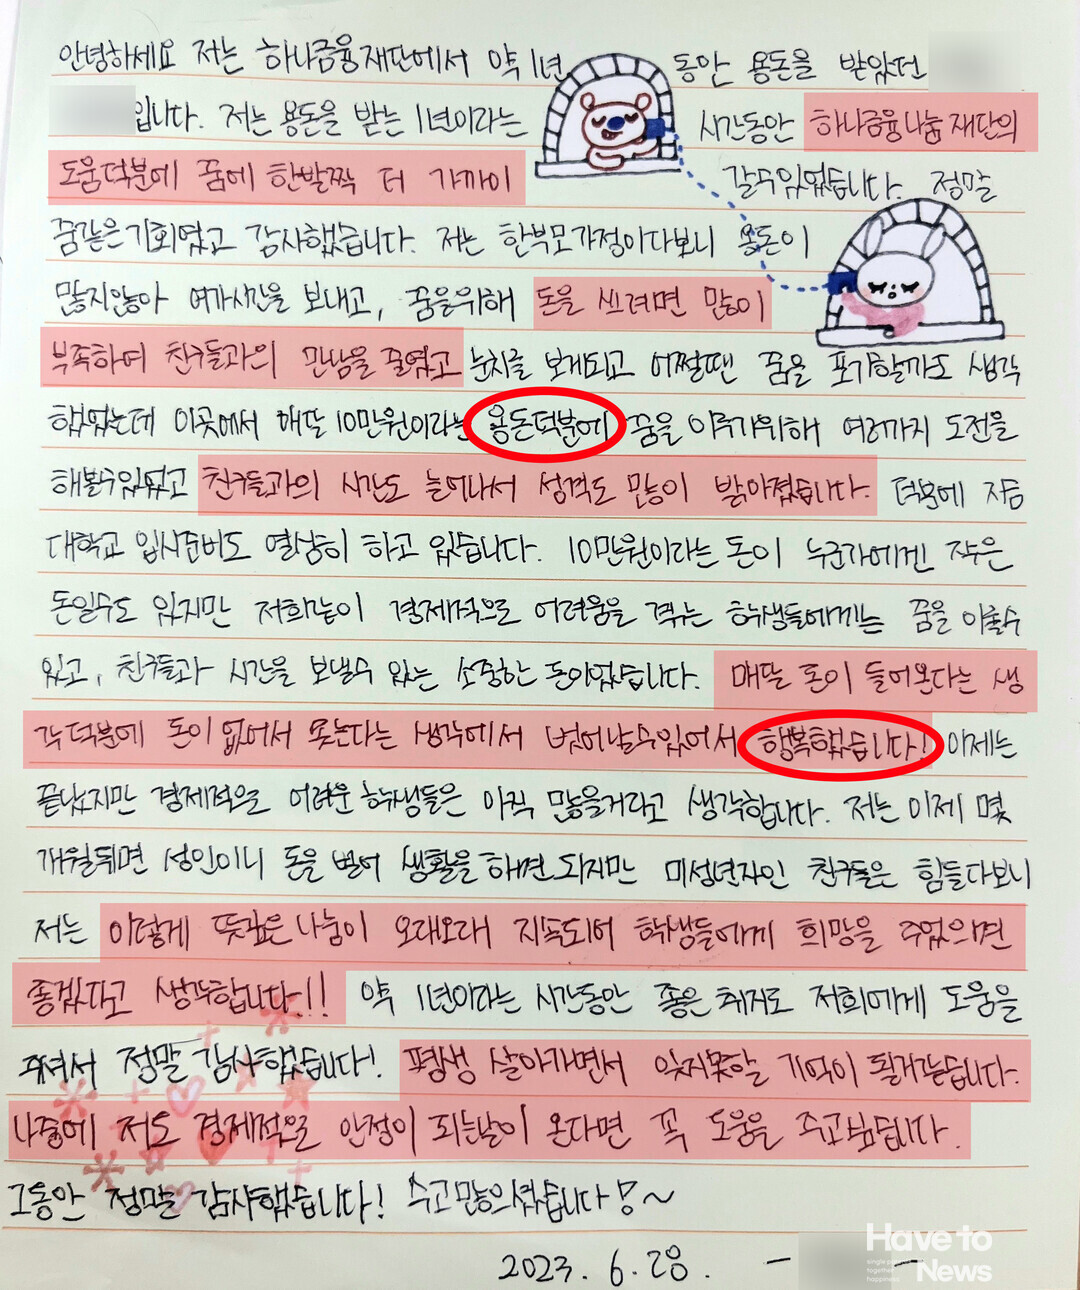 안녕하세요 저는 하나금융재단에서 약 1년 동안 용돈을 받았던
입니다. 저는 용돈을 받는 1년이라는 시간동안 하나금융나눔재단의
도움덕분에 꿈에 한발짝 더 가까이 갈수있었습니다. 정말
꿈같은기회였고 감사했습니다. 저는 한부모가정이다보니 용돈이
많지않아 여가시간을 보내고, 꿈을위해 돈을 쓰려면 많이
부족하여 친구들과의 만남을 줄였고 눈치를 보게되고 어쩔땐 꿈을 포기할까도 생각
했었는데 이곳에서 매달 10만원이라는 용돈덕분에 꿈을 이루기위해 여러가지 도전을
해볼수있었고 친구들과의 시간도 늘어나서 성격도 많이 밝아졌습니다. 덕분에 지금
대학교 입시준비도 열심히 하고 있습니다. 10만원이라는 돈이 누군가에겐 작은
돈일수도 있지만 저희같이 경제적으로 어려움을 겪는 학생들에게는 꿈을 이룰수
있고, 친구들과 시간을 보낼수 있는 소중한 돈이었습니다. 매달 돈이 들어온다는 생
각덕분에 돈이 없어서 못논다는 생각에서 벗어날수있어서 행복했습니다! 이제는
끝났지만 경제적으로 어려운 학생들은 아직 많을거라고 생각합니다. 저는 이제 몇
개월뒤면 성인이니 돈을 벌어 생활을 하면 되지만 미성년자인 친구들은 힘들다보니
저는 이렇게 뜻깊은 나눔이 오래오래 지속되어 학생들에게 희망을 주었으면
좋겠다고 생각합니다!! 약 1년이라는 시간동안 좋은 취지로 저희에게 도움을
주셔서 정말 감사했습니다! 평생 살아가면서 잊지못할 기억이 될거같습니다.
나중에 저도 경제적으로 안정이 되는날이 온다면 꼭 도움을 주고싶습니다.
그동안 정말 감사했습니다! 수고많으셨습니다!~
2023. 6. 28. -
Have to
News
single people
together
happiness